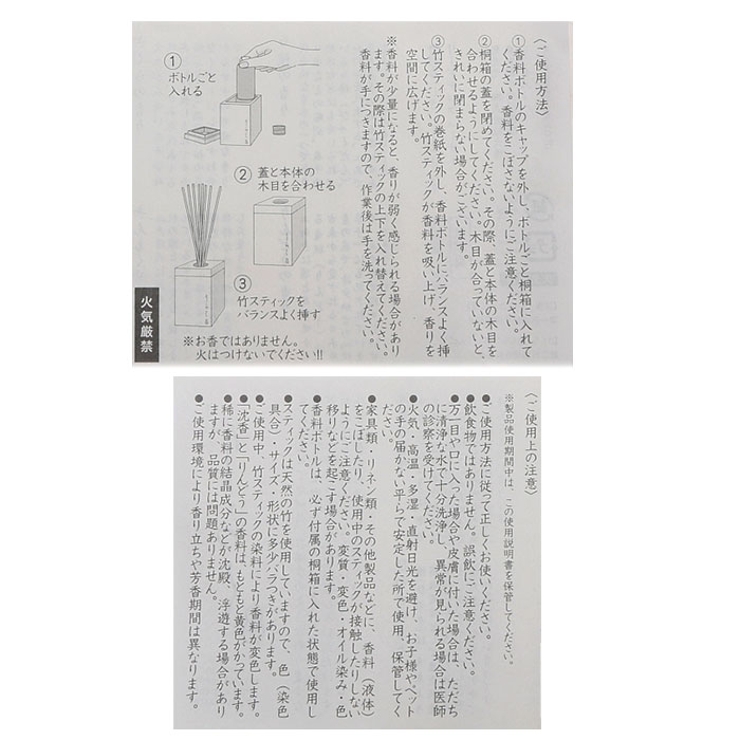 〈ご使用方法〉
①香料ボトルのキャップを外し、ボトルごと桐箱に入れて
ください。香料をこぼさないようにご注意ください。
②桐箱の蓋を閉めてください。その際、蓋と本体の木目を
合わせるようにしてください。木目が合っていないと、
きれいに閉まらない場合がございます。
③竹スティックの巻紙を外し、香料ボトルにバランスよく挿
してください。竹スティックが香料を吸い上げ、香りを
空間に広げます。
※香料が少量になると、香りが弱く感じられる場合があり
ます。その際は竹スティックの上下を入れ替えてください。
香料が手につきますので、作業後は手を洗ってください。
①
ボトルごと
入れる
② 蓋と本体の
木目を合わせる
③
竹スティックを
バランスよく挿す
※お香ではありません。
火はつけないでください!!
火気厳禁
〈ご使用上の注意〉
※製品使用期間中は、この使用説明書を保管してください。
●ご使用方法に従って正しくお使いください。
●飲食物ではありません。誤飲にご注意ください。
●万一目や口に入った場合や皮膚に付いた場合は、ただち
に清浄な水で十分洗浄し、異常が見られる場合は医師
の診察を受けてください。
●火気・高温・多湿・直射日光を避け、お子様やペット
の手の届かない平らで安定した所で使用、保管してく
ださい。
●家具類・リネン類・その他製品などに、香料（液体）
をこぼしたり、使用中のスティックが接触したりしない
ようにご注意ください。変質・変色・オイル染み・色
移りなどを起こす場合があります。
●香料ボトルは、必ず付属の桐箱に入れた状態で使用し
てください。
●スティックは天然の竹を使用していますので、色（染色
具合）・サイズ・形状に多少バラつきがあります。
●ご使用中、竹スティックの染料により香料が変色します。
●「沈香」と「りんどう」の香料は、もともと黄色がかっています。
●稀に香料の結晶成分などが沈殿、浮遊する場合があり
ますが、品質には問題ありません。
●ご使用環境により香り立ちや芳香期間は異なります。